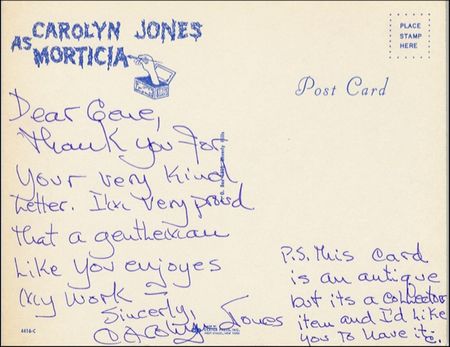 AS CAROLYN JONES
MORTICIA
PLACE
STAMP
HERE
Post Card
Dear Gene,
Thank you for
your very kind
letter. I'm very proud
that a gentleman
like you enjoyes
my work –
Sincerly,
Carolyn Jones
P.S. This card
is an antique
but its a collector
item and I'd like
you to have it.
4416-C